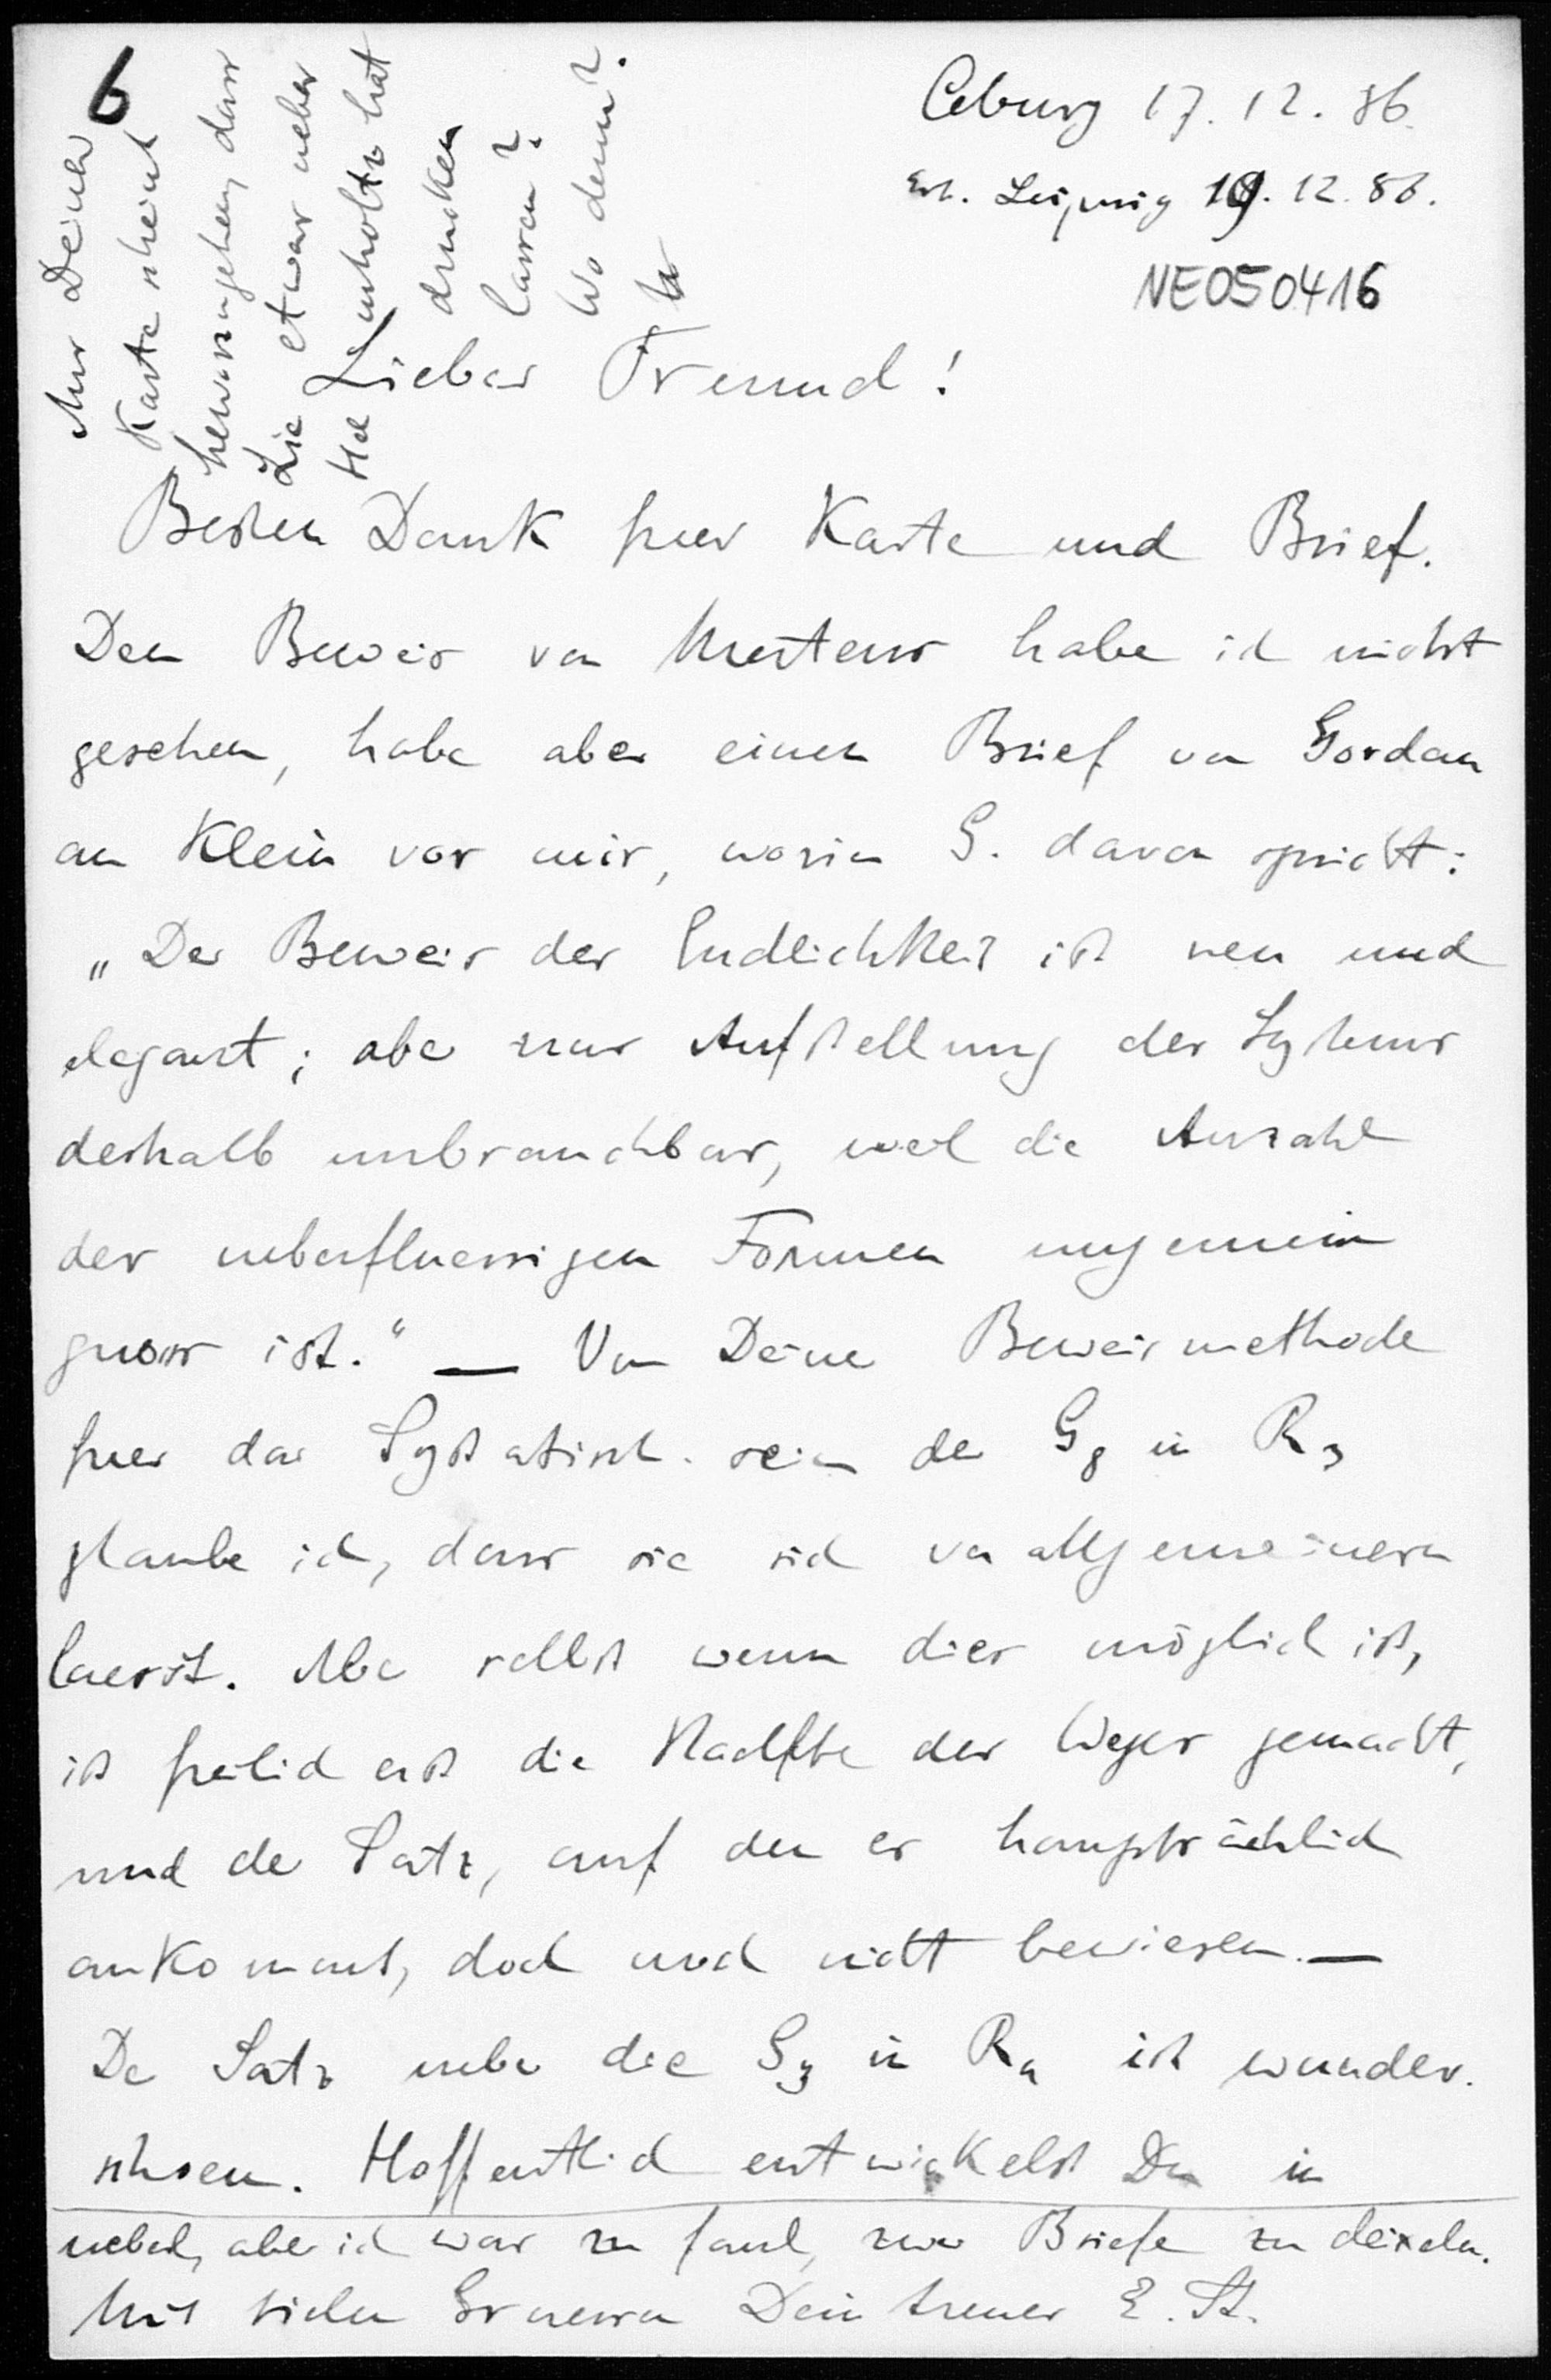 6
Coburg 17.12.86.
Erh. Leipzig 19.12.86.
NE050416
Aus Deiner
Karte scheint
hervorzugehen, dass
Lie etwas ueber
Helmholtz hat
drucken
lassen?
Wo denn?
Lieber Freund!
Besten Dank fuer Karte und Brief.
Den Beweis von Mertens habe ich nicht
gesehen, habe aber einen Brief von Gordan
an Klein vor mir, worin G. davon spricht:
„Der Beweis der Endlichkeit ist neu und
elegant; aber zur Aufstellung des Systems
deshalb unbrauchbar, weil die Anzahl
der ueberfluessigen Formen ungemein
gross ist." — Von Deiner Beweismethode
fuer das Systatisch-sein der G8 in R3
glaube ich, dass sie sich verallgemeinern
laesst. Aber selbst wenn dies möglich ist,
ist freilich erst die Haelfte des Weges gemacht,
und der Satz, auf den es hauptsächlich
ankommt, doch noch nicht bewiesen. —
Der Satz ueber die G3 in Rn ist wunder-
schoen. Hoffentlich entwickelst Du in
uebel, aber ich war zu faul, zwei Briefe zu deixeln.
Mit vielen Gruessen Dein treuer E. St.